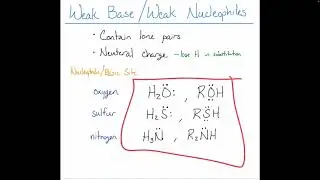 Weak Base/Weak Nucleophiles
• Contain lone pairs
• Neutral charge - lose H in substitution
Nucleophilic/Basic Site
oxygen H₂Ö: , RÖH
sulfur H₂S̈: , RS̈H
nitrogen H₃N̈ , R₂N̈H